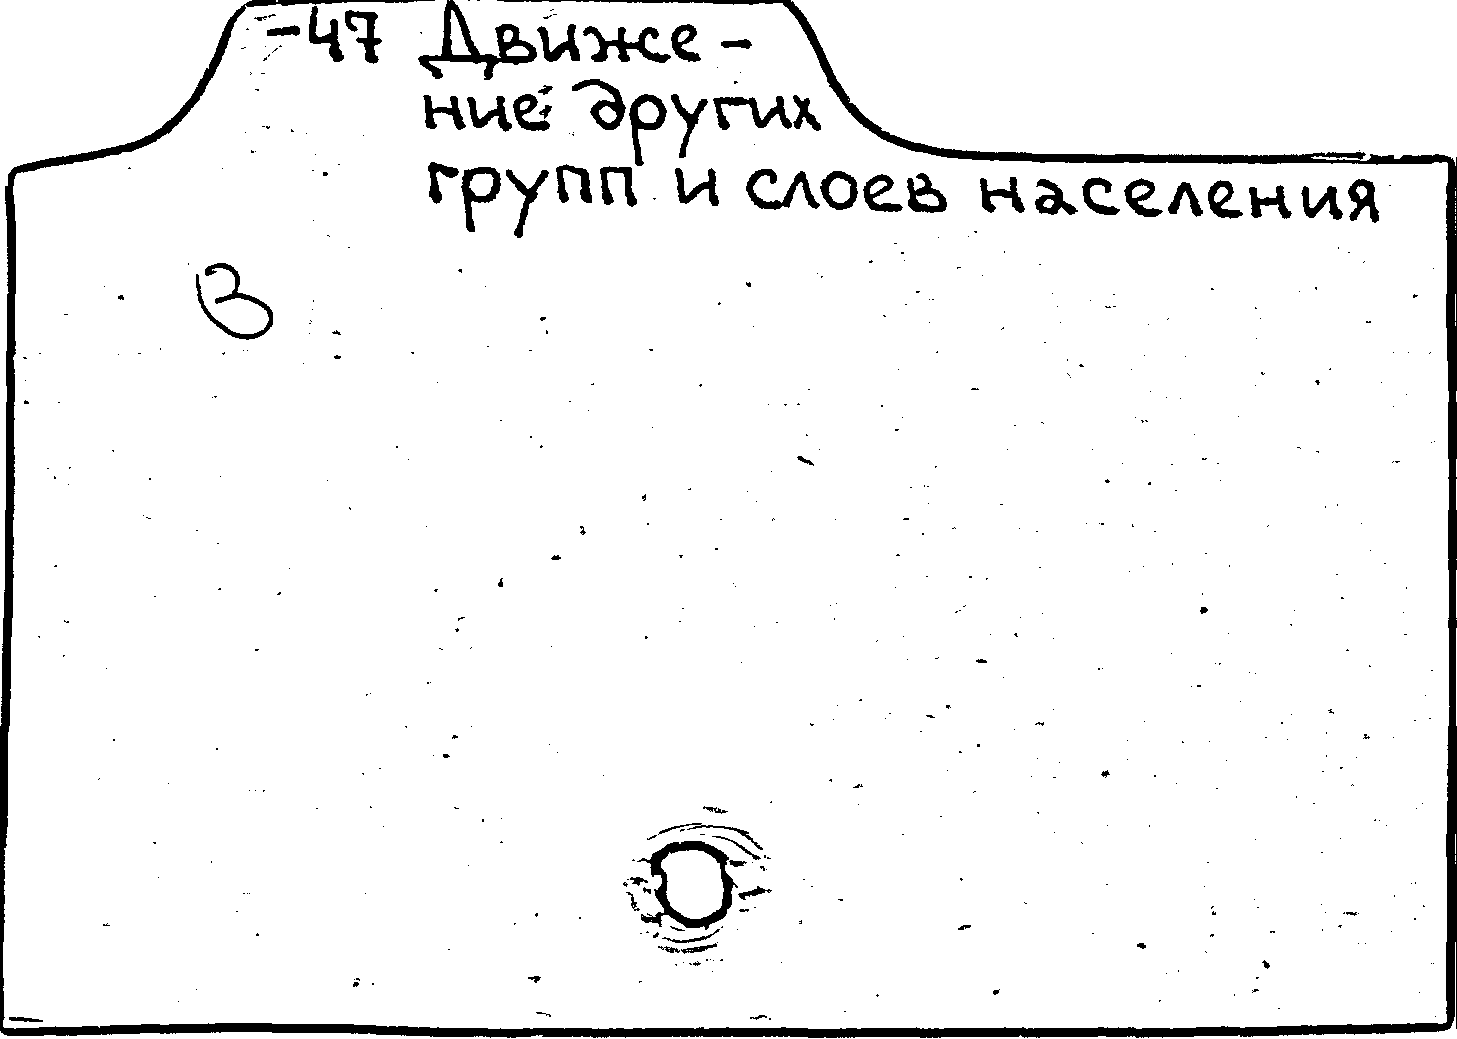 -47 Движе-
ние других
групп и слоев населения
В